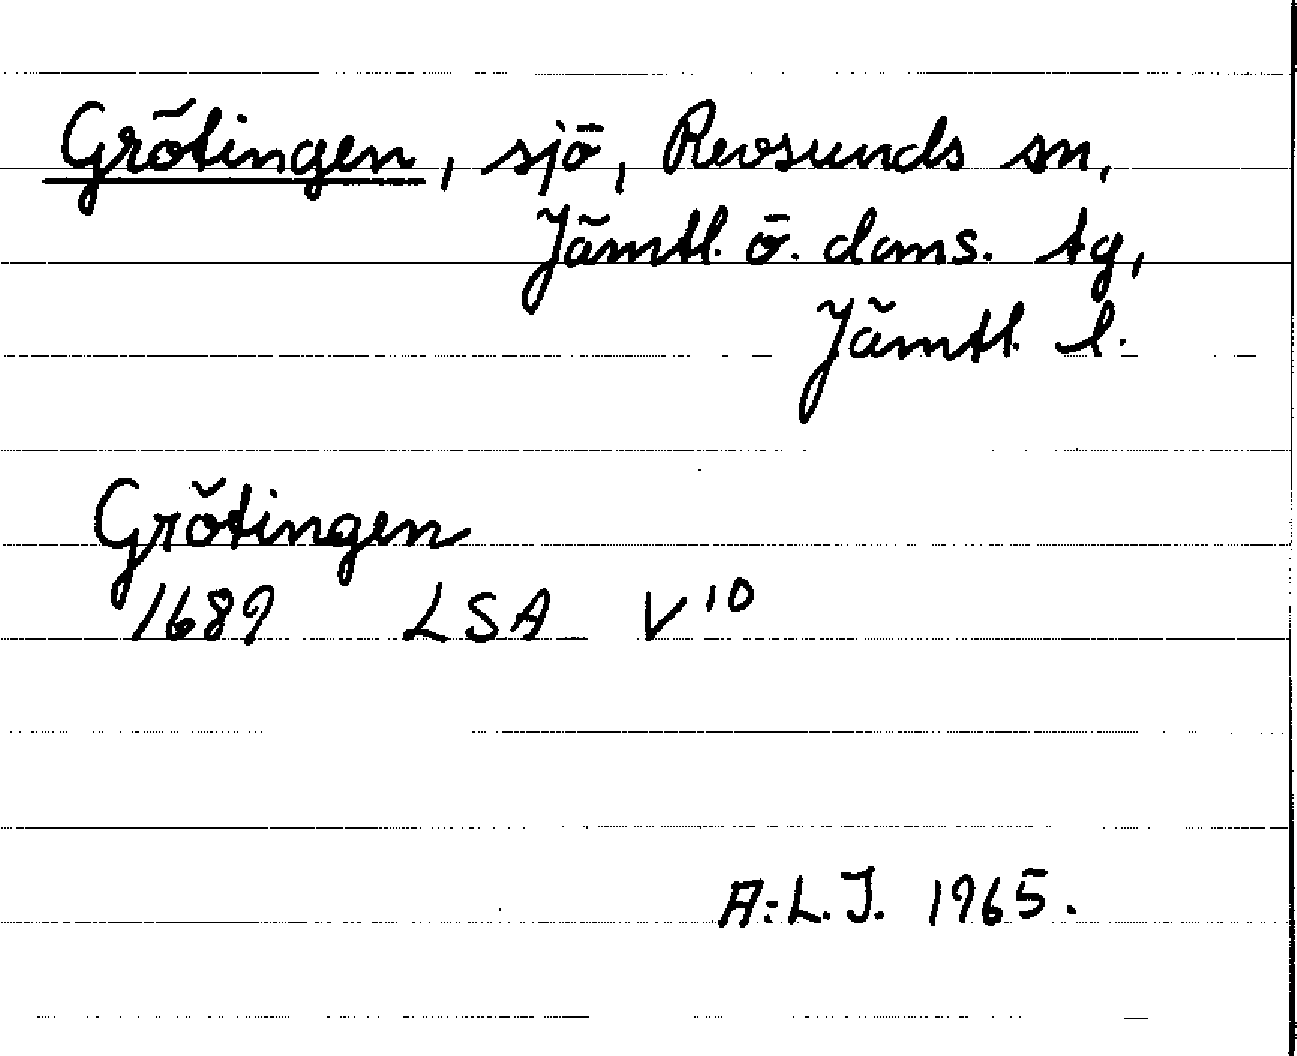 Grötingen, sjö, Revsunds sn,
Jämtl. ö. doms. tg,
Jämtl. l.
Grötingen
1689 LSA V¹⁰
A.-L. J. 1965.